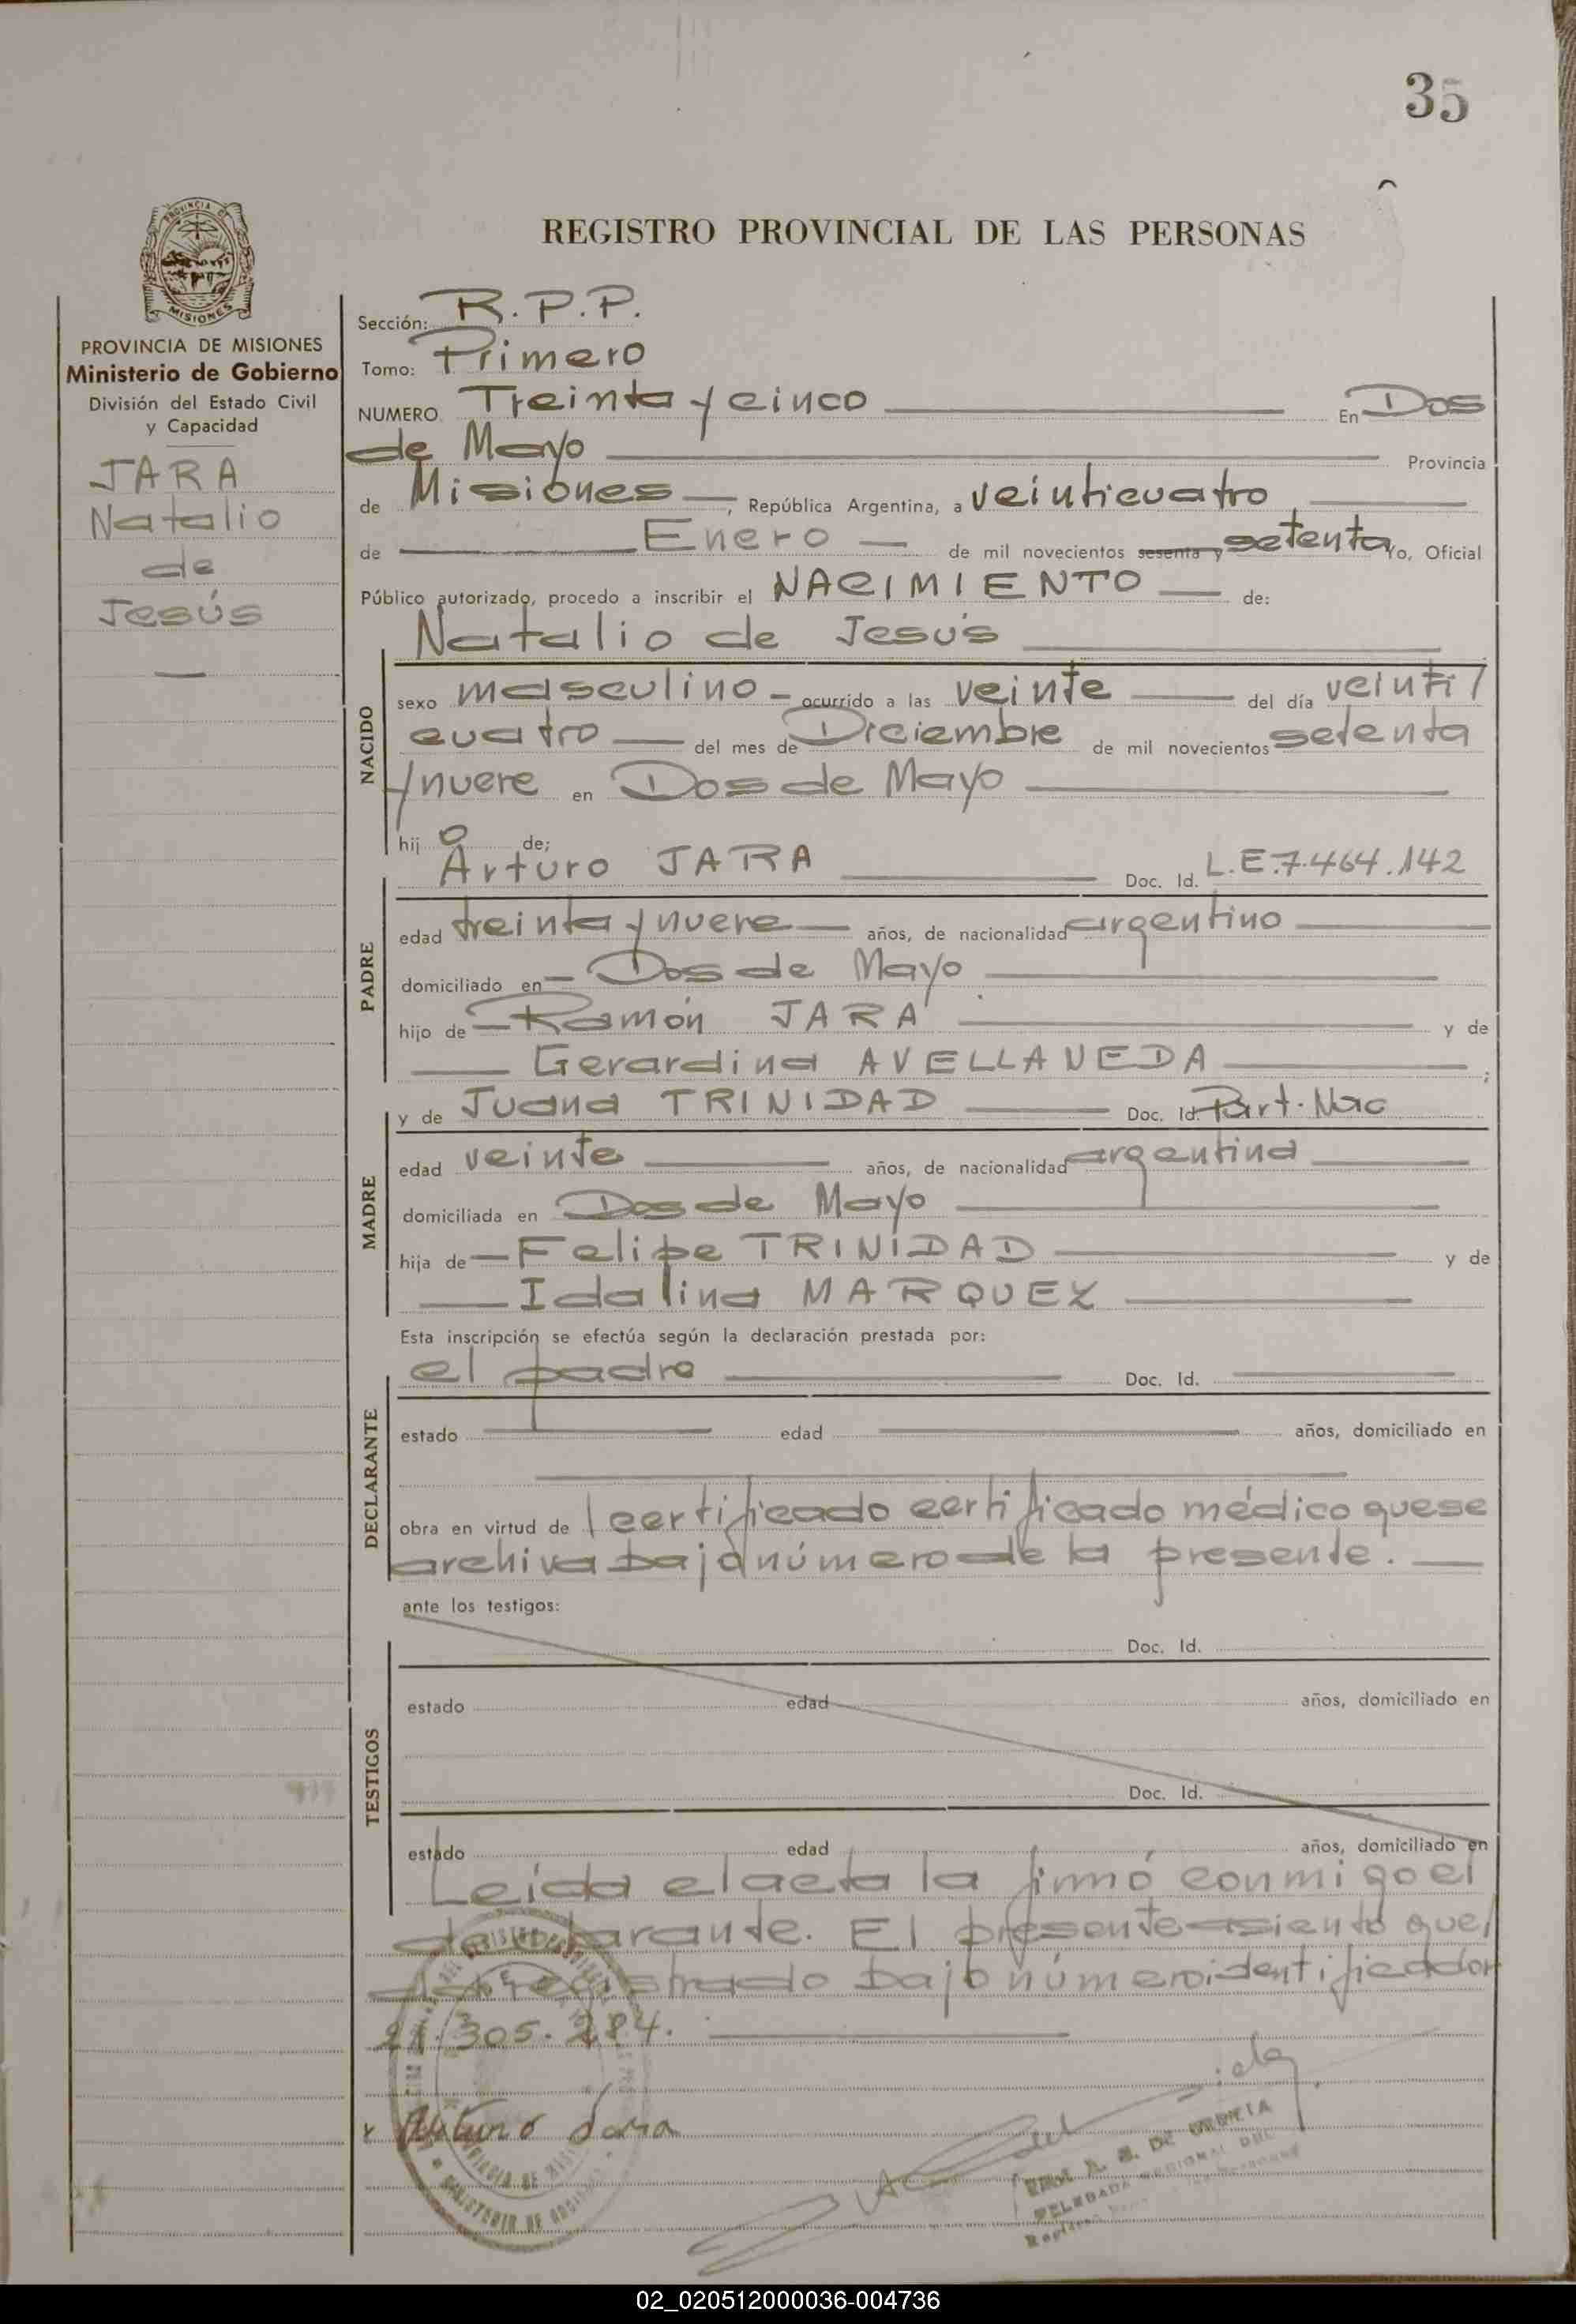 35
REGISTRO PROVINCIAL DE LAS PERSONAS
PROVINCIA DE MISIONES
PROVINCIA DE MISIONES
Ministerio de Gobierno
División del Estado Civil
y Capacidad
JARA
Natalio
de
Jesús
Sección: R.P.P.
Tomo: Primero
NUMERO Treinta y cinco En Dos
de Mayo Provincia
de Misiones, República Argentina, a veinticuatro
de Enero de mil novecientos sesenta y setenta Yo, Oficial
Público autorizado, procedo a inscribir el NACIMIENTO de:
Natalio de Jesús
NACIDO
sexo masculino ocurrido a las veinte del día veinti
cuatro del mes de Diciembre de mil novecientos setenta
y nueve en Dos de Mayo
hijo de;
PADRE
Arturo JARA Doc. Id. L.E.7.464.142
edad treinta y nueve años, de nacionalidad argentino
domiciliado en Dos de Mayo
hijo de Ramón JARA y de
Gerardina AVELLANEDA ;
MADRE
y de Juana TRINIDAD Doc. Id. Part. Nac
edad veinte años, de nacionalidad argentina
domiciliada en Dos de Mayo
hija de Felipe TRINIDAD y de
Idalina MARQUEZ
Esta inscripción se efectúa según la declaración prestada por:
DECLARANTE
el padre Doc. Id.
estado edad años, domiciliado en
obra en virtud de l certificado certificado médico que se
archiva bajo número de la presente.
ante los testigos:
TESTIGOS
Doc. Id.
estado edad años, domiciliado en
Doc. Id.
estado edad años, domiciliado en
Leída el acta la firmó conmigo el
declarante. El presente asiento que
da registrado bajo número identificador
305.284.
Arturo Jara
DELEGADA REGIONAL DEL
02_020512000036-004736